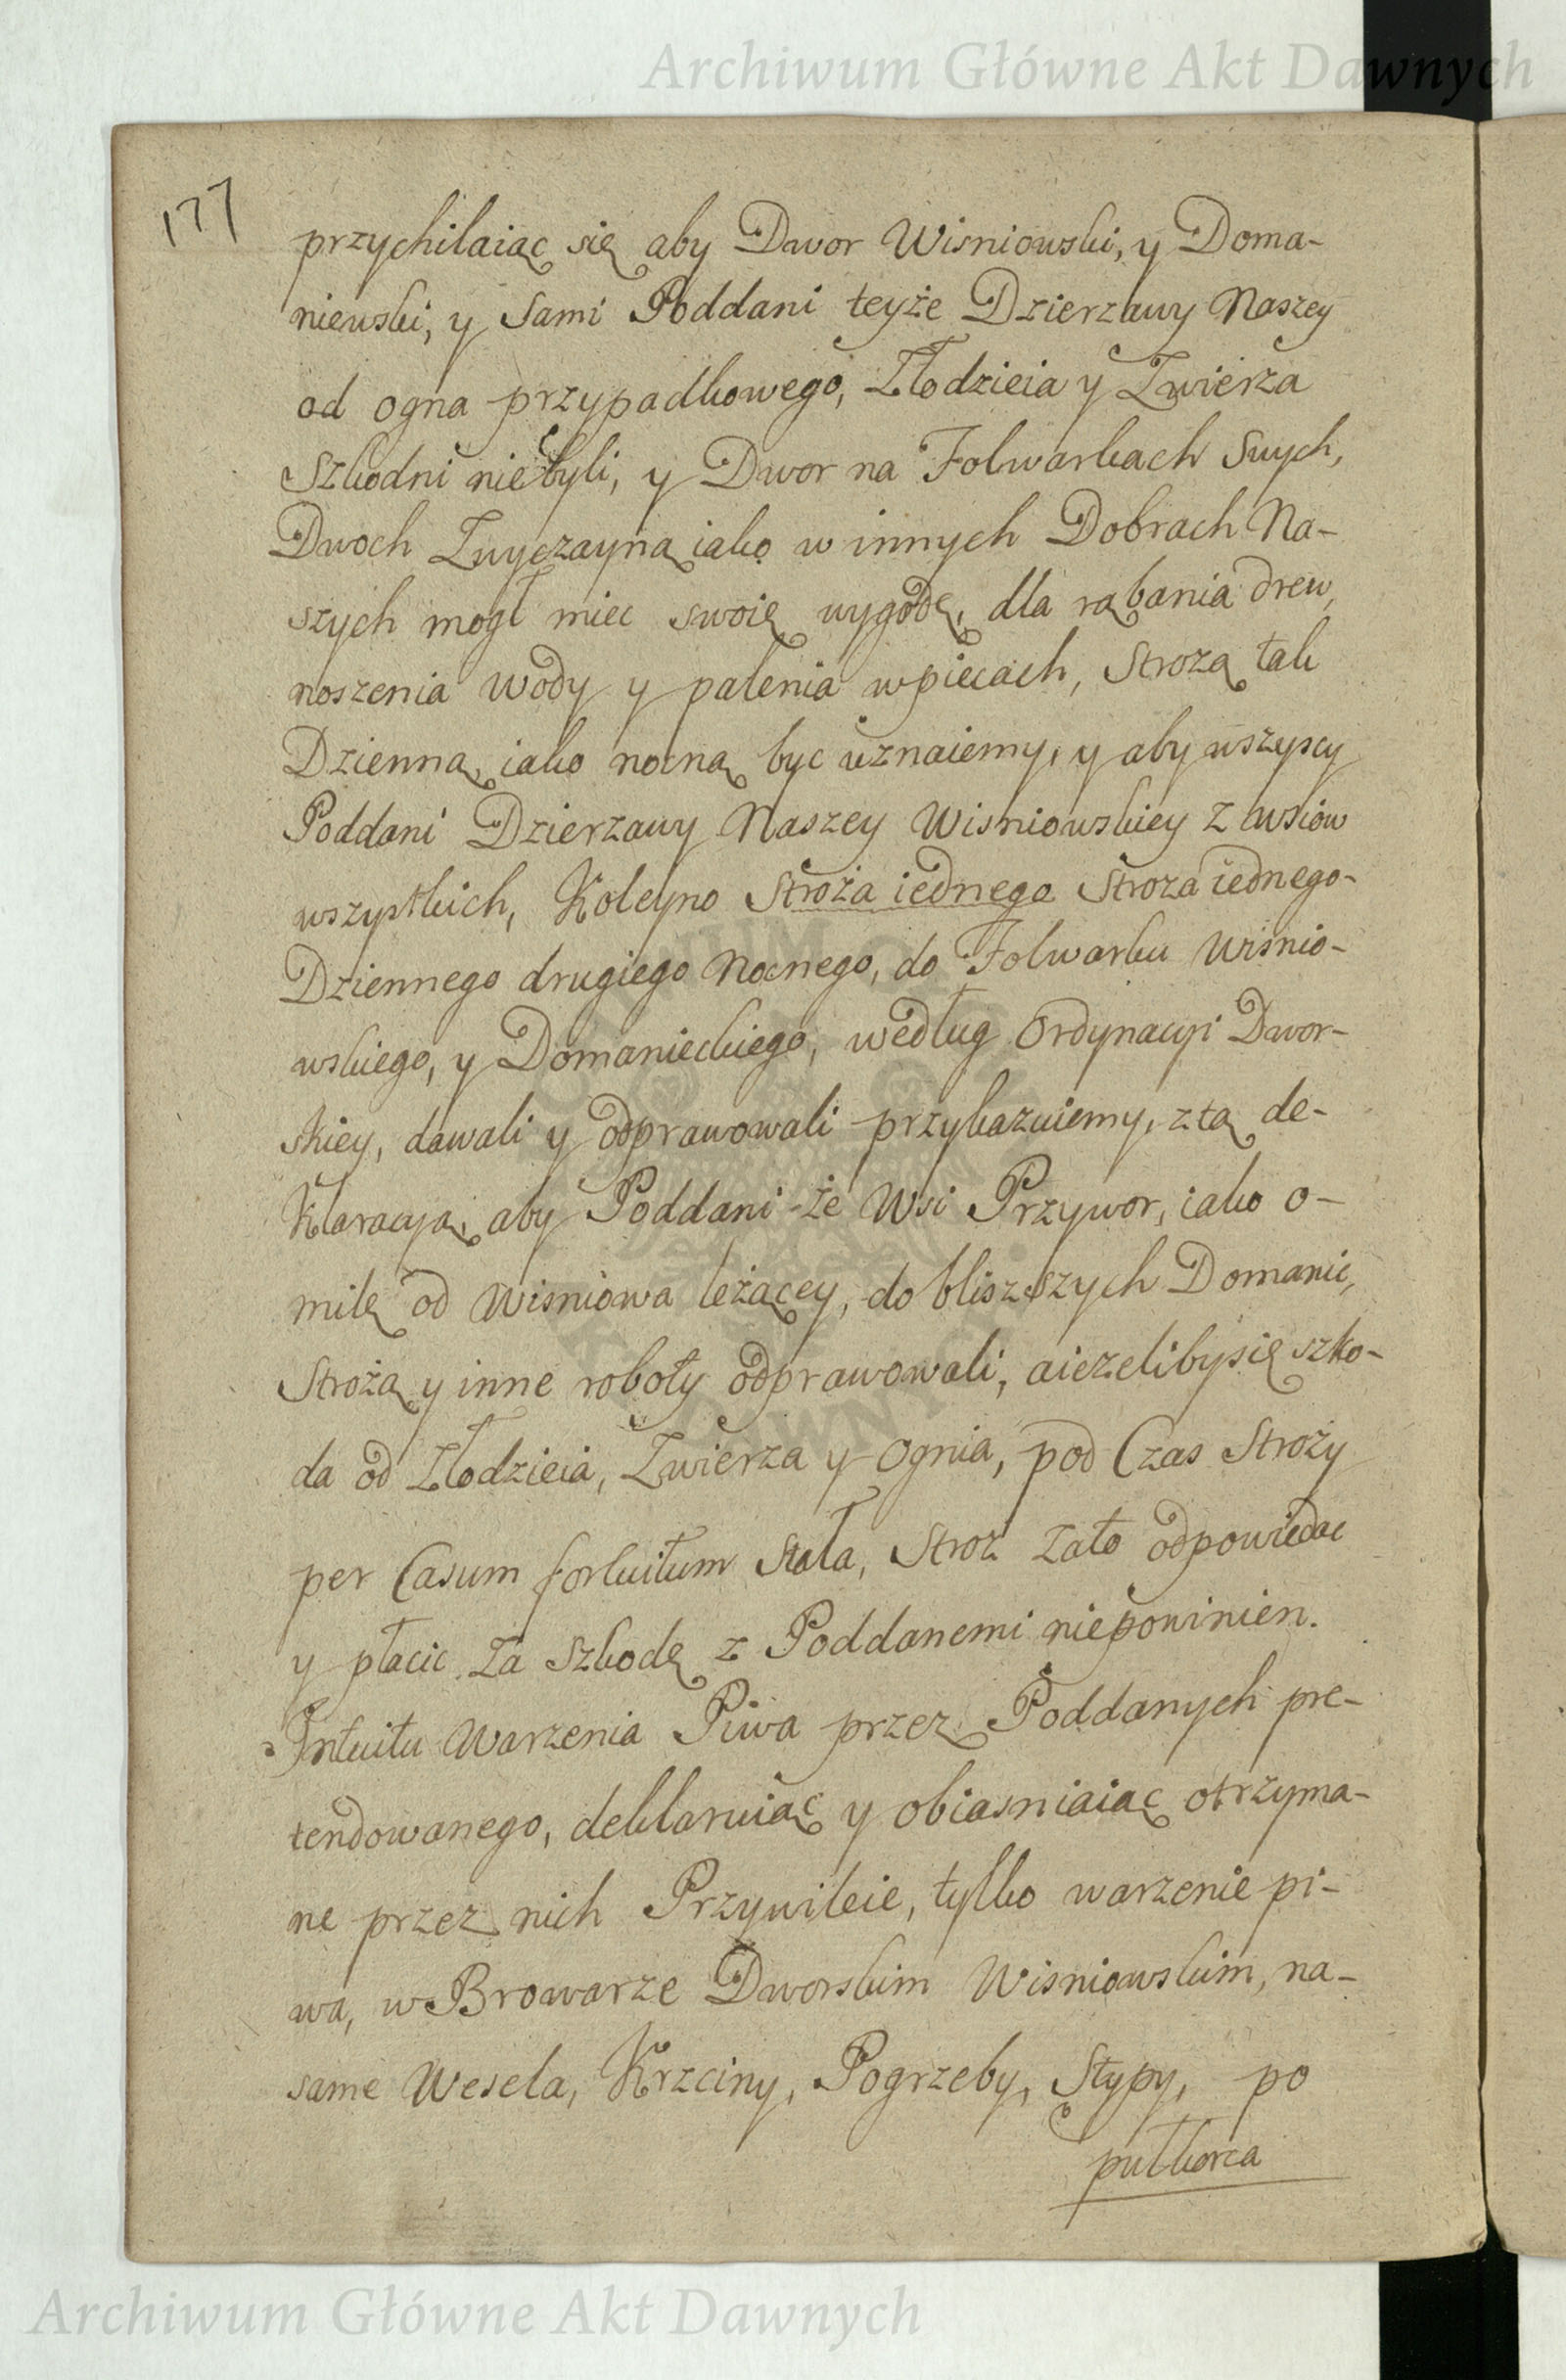 Archiwum Główne Akt Dawnych
177
przychilaiąc się aby Dwor Wisniowski, y Doma-
niewski, y Sami Poddani teyże Dzierzawy Naszey
od ogna przypadkowego, Złodzieia y Zwierza
Szkodni niebyli, y Dwor na Folwarkach Swych,
Dwoch Zwyczayną iako w innych Dobrach Na-
szych mogł miec swoię wygodę, dla rąbania drew,
noszenia wody y palenia wpiecach, Strozą tak
Dzienną, iako nocną byc uznaiemy, y aby wszyscy
Poddani Dzierzawy Naszey Wisniowskiey z wsiow
wszystkich, Koleyno Stroża iednego Stroza iednego
Dziennego drugiego Nocnego, do Folwarku Wisnio-
wskiego, y Domanieckiego, według Ordynacyi Dwor-
skiey, dawali y odprawowali przykazuiemy, z tą de-
Klaracyą, aby Poddani-że Wsi Przywor, iako o-
milę od Wisniowa leżącey, do bliszszych Domanic,
Strożą y inne roboty odprawowali, aiezelibysię szko-
da od Złodzieia, Zwierza y Ognia, pod Czas Stroży
per Casum fortuitum Stała, Stroż zato odpowiedac
y płacic za Szkodę z Poddanemi niepowinien.
Intuitu Warzenia Piwa przez Poddanych pre-
tendowanego, deklaruiąc y obiasniaiąc otrzyma-
ne przez nich Przywileie, tylko warzenie pi-
wa, w Browarze Dworskim Wisniowskim, na-
same Wesela, Krzciny, Pogrzeby, Stypy, po
pułkorca
Archiwum Główne Akt Dawnych